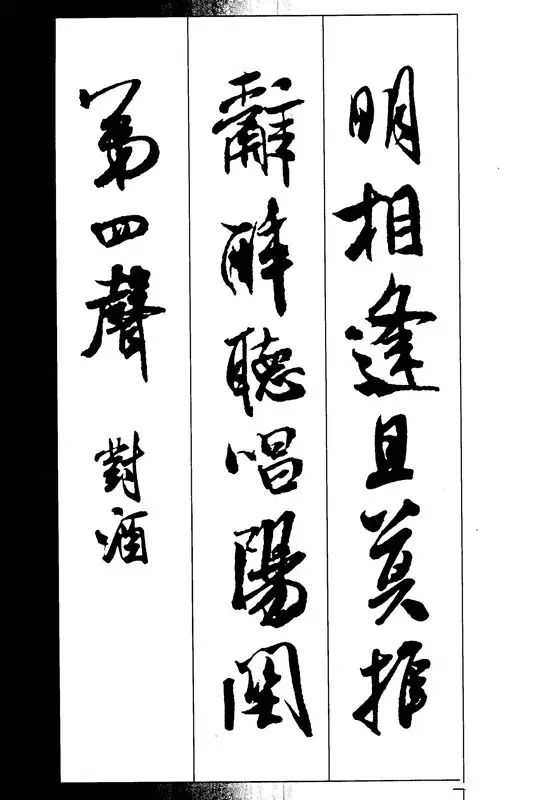 明相逢且莫推
辭醉聽唱陽關
第四聲 對酒